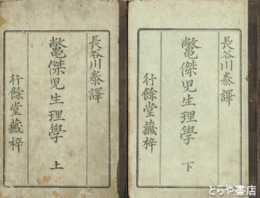 長谷川泰譯
鼈傑児生理學 上
行餘堂藏梓
長谷川泰譯
鼈傑児生理學 下
行餘堂藏梓
とらや書店